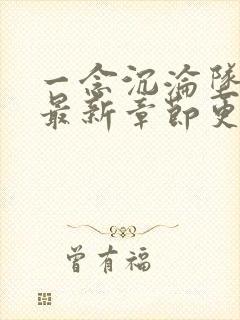 一念沉沦坠
最新章节更
曾有福